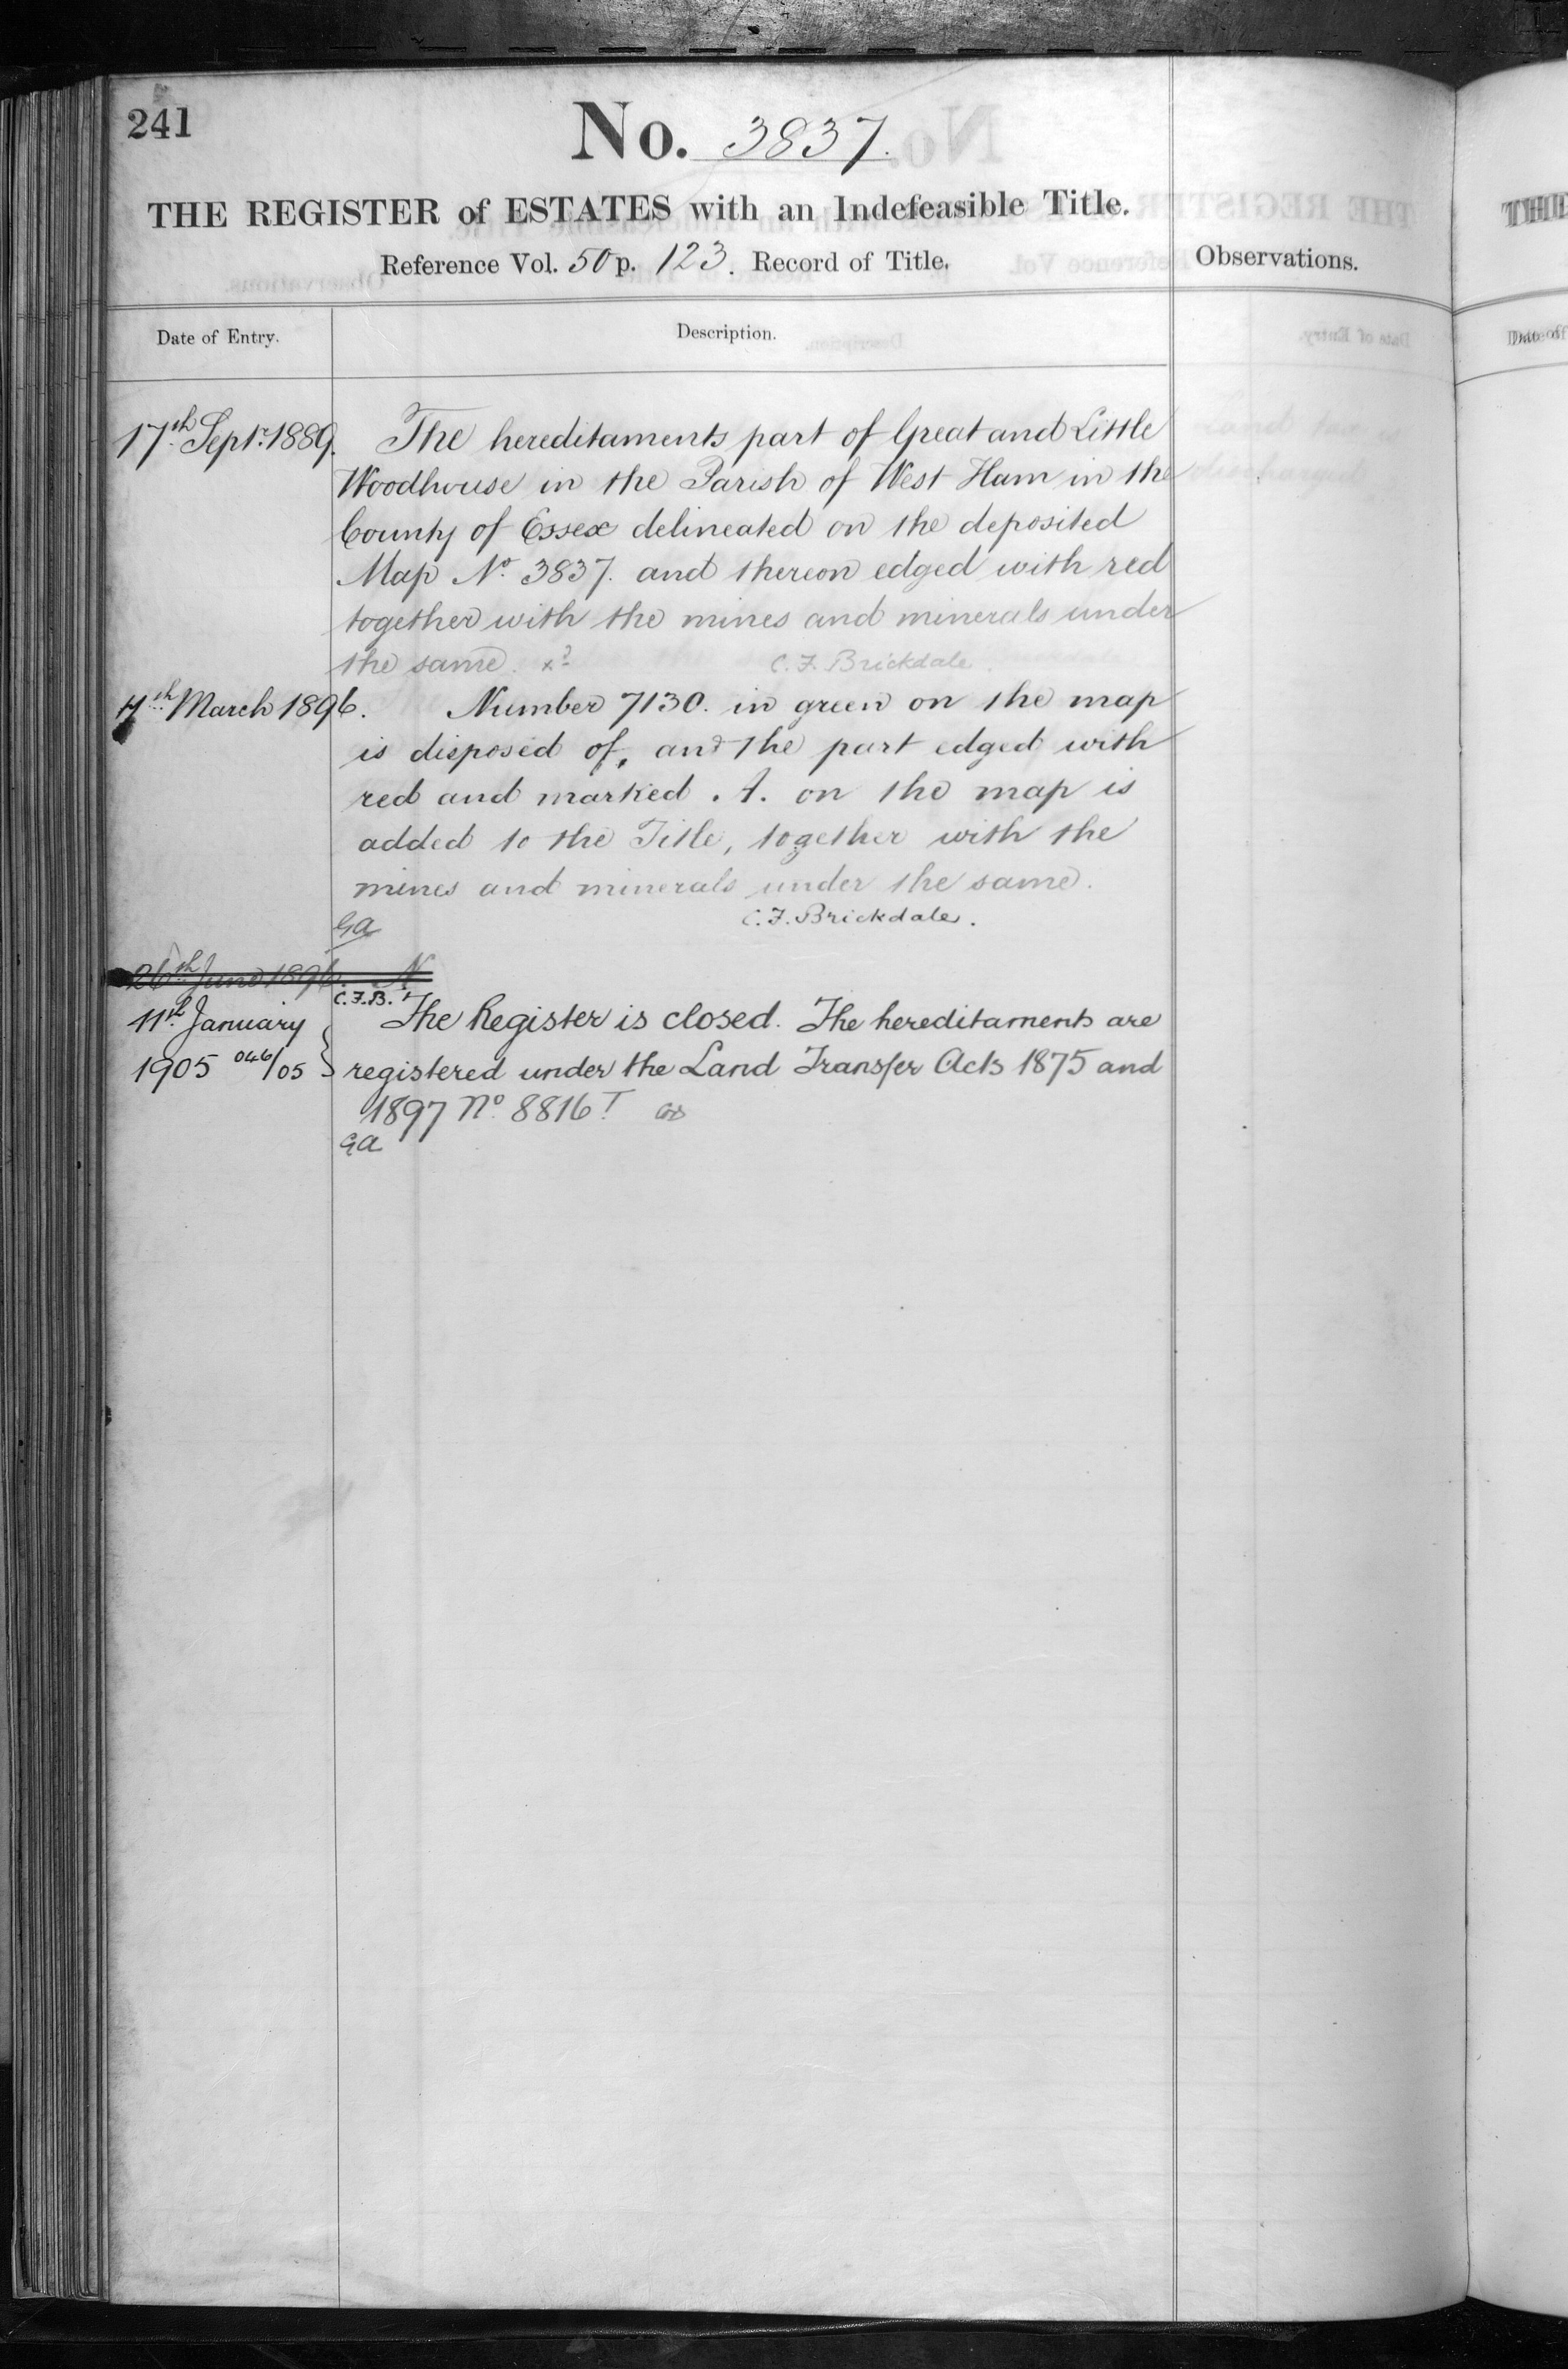 241
No. 3837.
THE REGISTER of ESTATES with an Indefeasible Title.
Reference Vol. 50 p. 123. Record of Title.
Observations.
Date of Entry.
Description.
17th Septr. 1889. The hereditaments part of Great and Little
Woodhouse in the Parish of West Ham in the
County of Essex delineated on the deposited
Map No. 3837. and thereon edged with red
together with the mines and minerals under
the same.
C. F. Brickdale.
March 1896. Number 7130. in green on the map
is disposed of, and the part edged with
red and marked .A. on the map is
added to the Title, together with the
mines and minerals under the same.
GA C. F. Brickdale.
26th June 1896. N
C.F.B.
11th January The Register is closed. The hereditaments are
1905 046/05 registered under the Land Transfer Acts 1875 and
1897 No. 8816 T
GA